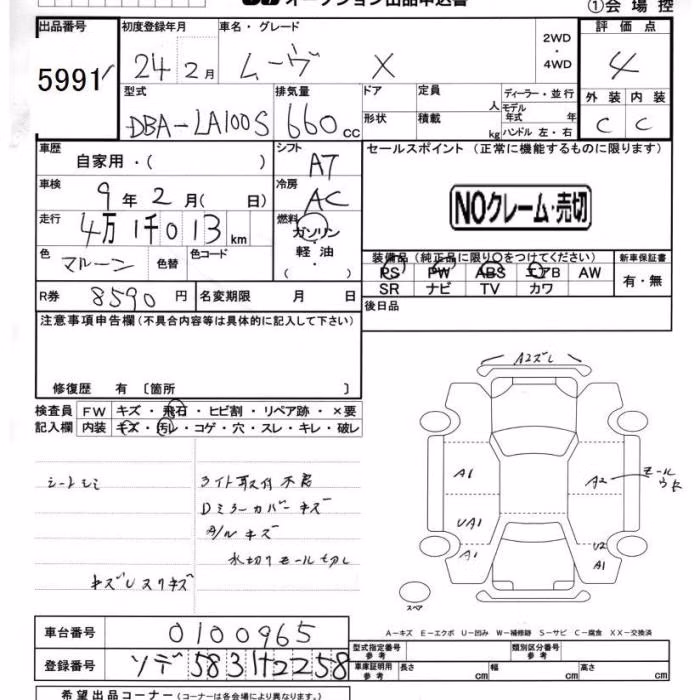 オークション出品申込書
①会場控
出品番号 初度登録年月 車名・グレード 2WD・4WD 評価点
5991 24年2月 ムーヴ X 4
型式 排気量 ドア 定員 人 ディーラー・並行 外装 内装
DBA-LA100S 660cc 形状 積載 kg モデル年式 年 ハンドル 左・右 C C
車歴 自家用・( ) シフト AT セールスポイント (正常に機能するものに限ります)
車検 9年2月( 日) 冷房 AC
NOクレーム・売切
走行 4万1千013km 燃料 ガソリン・軽油・( )
色 マルーン 色替 色コード
装備品 (純正品に限り○をつけてください) 新車保証書
PS PW ABS エアB AW 有・無
SR ナビ TV カワ
R券 8590円 名変期限 月 日
後日品
注意事項申告欄(不具合内容等は具体的に記入して下さい)
修復歴 有 〔箇所 〕
検査員記入欄 FW キズ・飛石・ヒビ割・リペア跡・×要
内装 キズ・汚レ・コゲ・穴・スレ・キレ・破レ
シートシミ
ライト取付不良
Dミラーカバーキズ
A/Wキズ
水切りモール切レ
キズUスリキズ
A2ズレ
A1
UA1
A1
A2
モールウキ
U2
A1
スペア
A-キズ E-エクボ U-凹み W-補修跡 S-サビ C-腐食 XX-交換済
車台番号 0100965
登録番号 ソデ583け2258
型式指定番号 参考 類別区分番号 参考
車庫証明用 参考 長さ cm 幅 cm 高さ cm
希望出品コーナー (コーナーは各会場により異なります。)